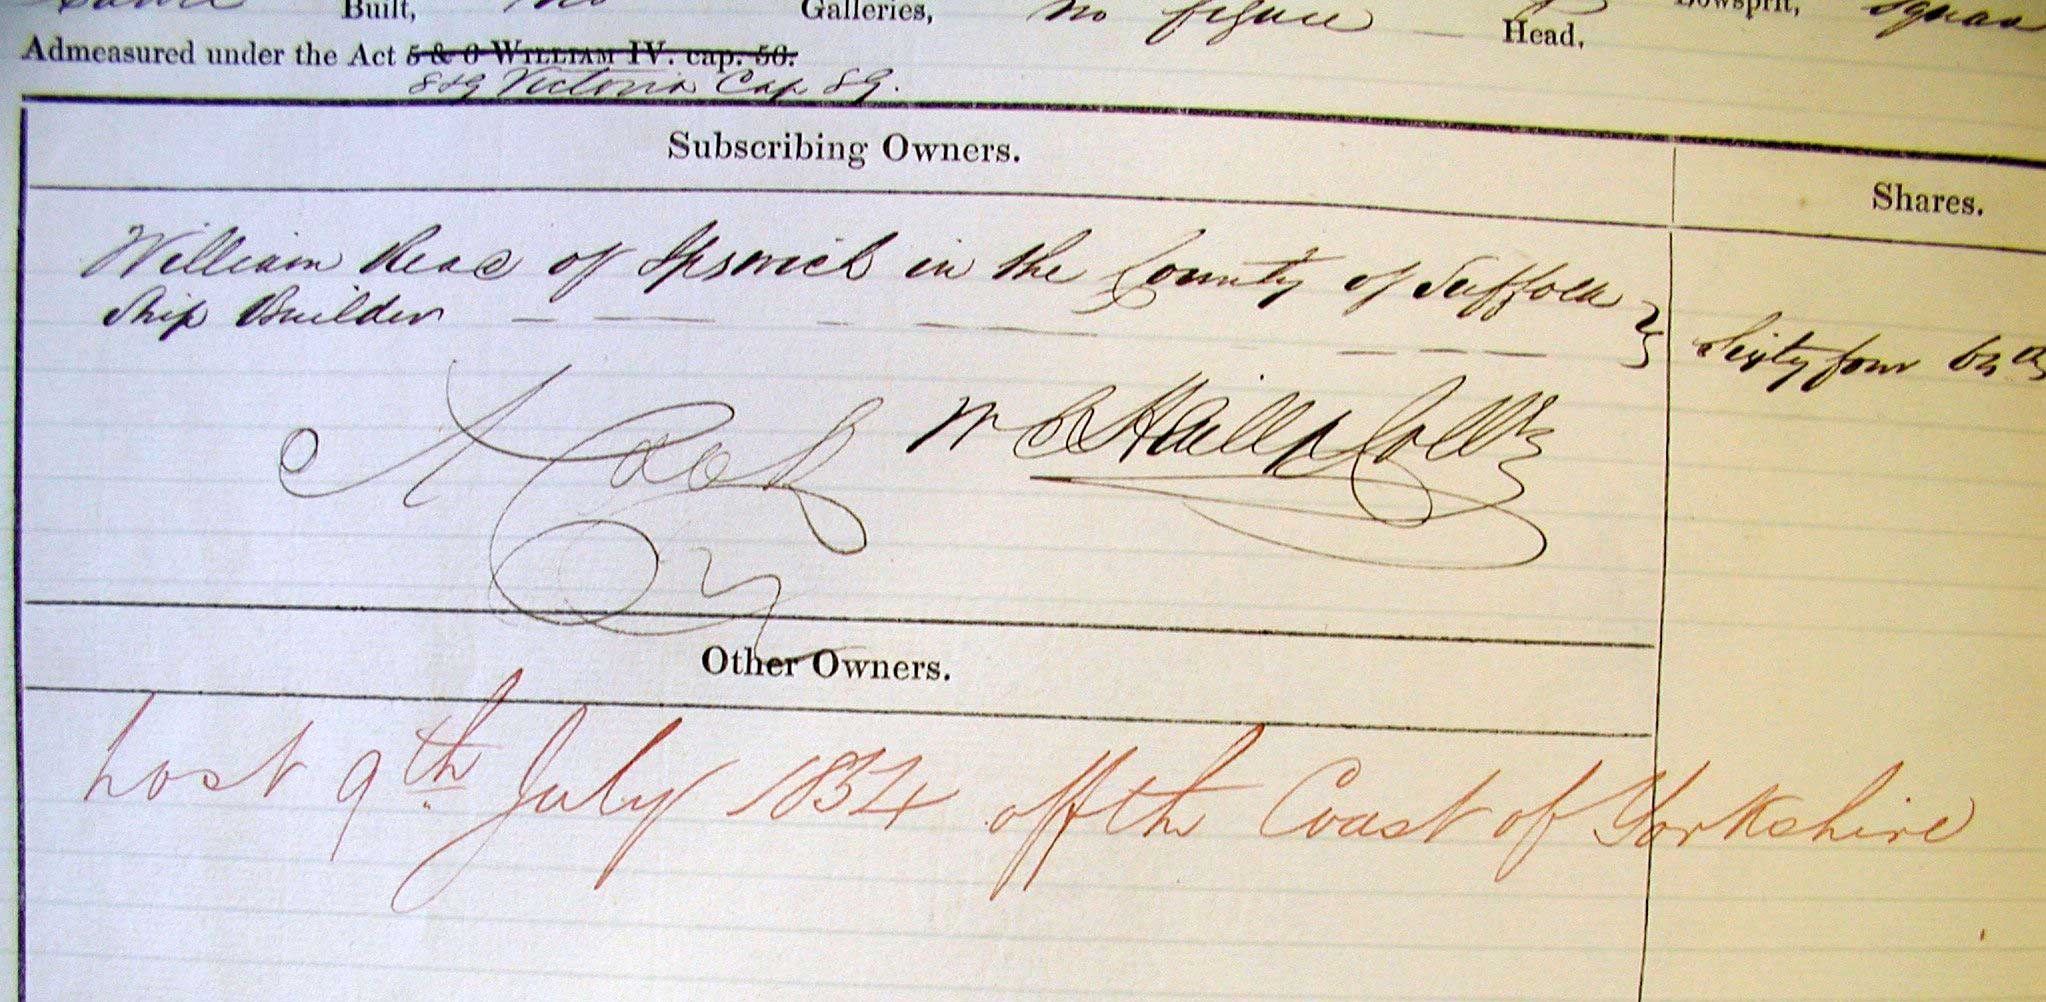 Built, No Galleries, no figure Head, Bowsprit,
Admeasured under the Act 5 & 6 WILLIAM IV. cap. 56.
8 & 9 Victoria Cap 89.
Subscribing Owners.
Shares.
William Read of Ipswich in the County of Suffolk
Ship Builder
Sixty four 64ths
Other Owners.
Lost 9th July 1834 off the Coast of Yorkshire